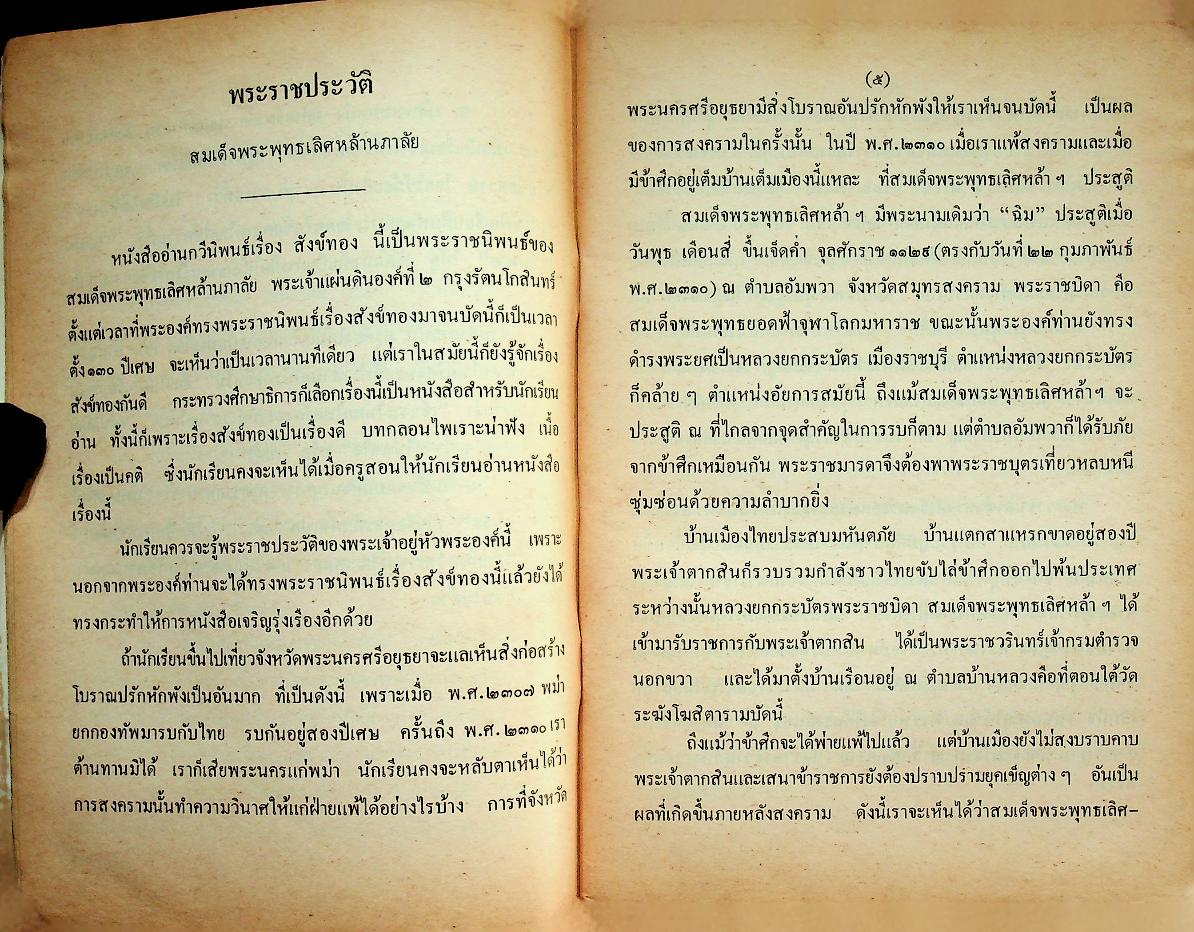 พระราชประวัติ
สมเด็จพระพุทธเลิศหล้านภาลัย
หนังสืออ่านกวีนิพนธ์เรื่อง สังข์ทอง นี้เป็นพระราชนิพนธ์ของ
สมเด็จพระพุทธเลิศหล้านภาลัย พระเจ้าแผ่นดินองค์ที่ ๒ กรุงรัตนโกสินทร์
ตั้งแต่เวลาที่พระองค์ทรงพระราชนิพนธ์เรื่องสังข์ทองมาจนบัดนี้ก็เป็นเวลา
ตั้ง ๑๓๐ ปีเศษ จะเห็นว่าเป็นเวลานานทีเดียว แต่เราในสมัยนี้ก็ยังรู้จักเรื่อง
สังข์ทองกันดี กระทรวงศึกษาธิการก็เลือกเรื่องนี้เป็นหนังสือสำหรับนักเรียน
อ่าน ทั้งนี้ก็เพราะเรื่องสังข์ทองเป็นเรื่องดี บทกลอนไพเราะน่าฟัง เนื้อ
เรื่องเป็นคติ ซึ่งนักเรียนคงจะเห็นได้เมื่อครูสอนให้นักเรียนอ่านหนังสือ
เรื่องนี้
นักเรียนควรจะรู้พระราชประวัติของพระเจ้าอยู่หัวพระองค์นี้ เพราะ
นอกจากพระองค์ท่านจะได้ทรงพระราชนิพนธ์เรื่องสังข์ทองนี้แล้วยังได้
ทรงกระทำให้การหนังสือเจริญรุ่งเรืองอีกด้วย
ถ้านักเรียนขึ้นไปเที่ยวจังหวัดพระนครศรีอยุธยาจะแลเห็นสิ่งก่อสร้าง
โบราณปรักหักพังเป็นอันมาก ที่เป็นดังนี้ เพราะเมื่อ พ.ศ.๒๓๐๗ พม่า
ยกกองทัพมารบกับไทย รบกันอยู่สองปีเศษ ครั้นถึง พ.ศ.๒๓๑๐ เรา
ต้านทานมิได้ เราก็เสียพระนครแก่พม่า นักเรียนคงจะหลับตาเห็นได้ว่า
การสงครามนั้นทำความวินาศให้แก่ฝ่ายแพ้ได้อย่างไรบ้าง การที่จังหวัด
(๕)
พระนครศรีอยุธยามีสิ่งโบราณอันปรักหักพังให้เราเห็นจนบัดนี้ เป็นผล
ของการสงครามในครั้งนั้น ในปี พ.ศ.๒๓๑๐ เมื่อเราแพ้สงครามและเมื่อ
มีข้าศึกอยู่เต็มบ้านเต็มเมืองนี้แหละ ที่สมเด็จพระพุทธเลิศหล้า ฯ ประสูติ
สมเด็จพระพุทธเลิศหล้า ฯ มีพระนามเดิมว่า “ฉิม” ประสูติเมื่อ
วันพุธ เดือนสี่ ขึ้นเจ็ดค่ำ จุลศักราช ๑๑๒๙ (ตรงกับวันที่ ๒๒ กุมภาพันธ์
พ.ศ.๒๓๑๐) ณ ตำบลอัมพวา จังหวัดสมุทรสงคราม พระราชบิดา คือ
สมเด็จพระพุทธยอดฟ้าจุฬาโลกมหาราช ขณะนั้นพระองค์ท่านยังทรง
ดำรงพระยศเป็นหลวงยกกระบัตร เมืองราชบุรี ตำแหน่งหลวงยกกระบัตร
ก็คล้าย ๆ ตำแหน่งอัยการสมัยนี้ ถึงแม้สมเด็จพระพุทธเลิศหล้าฯ จะ
ประสูติ ณ ที่ไกลจากจุดสำคัญในการรบก็ตาม แต่ตำบลอัมพวาก็ได้รับภัย
จากข้าศึกเหมือนกัน พระราชมารดาจึงต้องพาพระราชบุตรเที่ยวหลบหนี
ซุ่มซ่อนด้วยความลำบากยิ่ง
บ้านเมืองไทยประสบมหันตภัย บ้านแตกสาแหรกขาดอยู่สองปี
พระเจ้าตากสินก็รวบรวมกำลังชาวไทยขับไล่ข้าศึกออกไปพ้นประเทศ
ระหว่างนั้นหลวงยกกระบัตรพระราชบิดา สมเด็จพระพุทธเลิศหล้า ฯ ได้
เข้ามารับราชการกับพระเจ้าตากสิน ได้เป็นพระราชวรินทร์เจ้ากรมตำรวจ
นอกขวา และได้มาตั้งบ้านเรือนอยู่ ณ ตำบลบ้านหลวงคือที่ตอนใต้วัด
ระฆังโฆสิตารามบัดนี้
ถึงแม้ว่าข้าศึกจะได้พ่ายแพ้ไปแล้ว แต่บ้านเมืองยังไม่สงบราบคาบ
พระเจ้าตากสินและเสนาข้าราชการยังต้องปราบปรามยุคเข็ญต่าง ๆ อันเป็น
ผลที่เกิดขึ้นภายหลังสงคราม ดังนี้เราจะเห็นได้ว่าสมเด็จพระพุทธเลิศ-